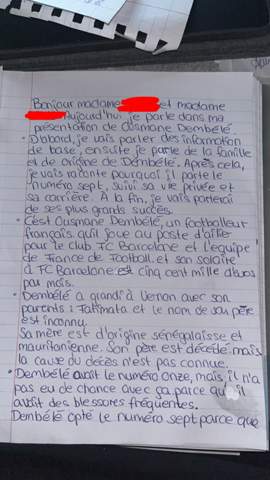 Bonjour madame et madame
Aujourd'hui je parle dans ma
présentation de Ousmane Dembélé.
• D'abord, je vais parler des information
de base, ensuite je parle de la famille
et de origine de Dembélé. Après cela,
je vais raconte pourquoi il porte le
numéro sept, suivi sa vie privée et
sa carrière. À la fin, je vais parlerai
de ses plus grants succès.
• C'est Ousmane Dembélé, un footballeur
français qui joue au poste d'ailier
pour le club FC Barcelone et l'equipe
de France de Football. et son salaire
à FC Barcelone est cinq cent mille d'euros
par mois.
• Dembélé a grandi à Vernon avec son
parents : Fatimata et le nom de sou père
est inconnu.
Sa mère est d'origine sénégalaisse et
mauritanienne. Son père est décédé mais
la cause du décès n'est pas connue.
• Dembélé avait le numéro onze, mais il n'a
pas eu de chance avec ça parce qu'il
avait des blessures fréquentes.
Dembélé opté le numéro sept parce que